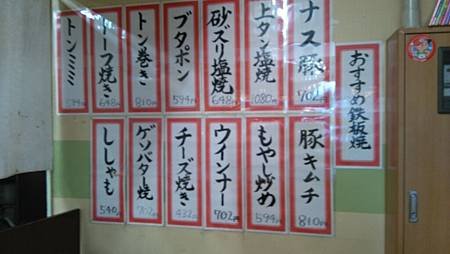 おすすめ鉄板焼
ナス豚
702円
上タン塩焼
1080円
砂ズリ塩焼
648円
ブタポン
594円
トン巻き
810円
ーフ焼き
648円
トンミミ
594円
豚キムチ
810円
もやし炒め
594円
ウインナー
702円
チーズ焼き
432円
ゲソバター焼
702円
ししゃも
540円